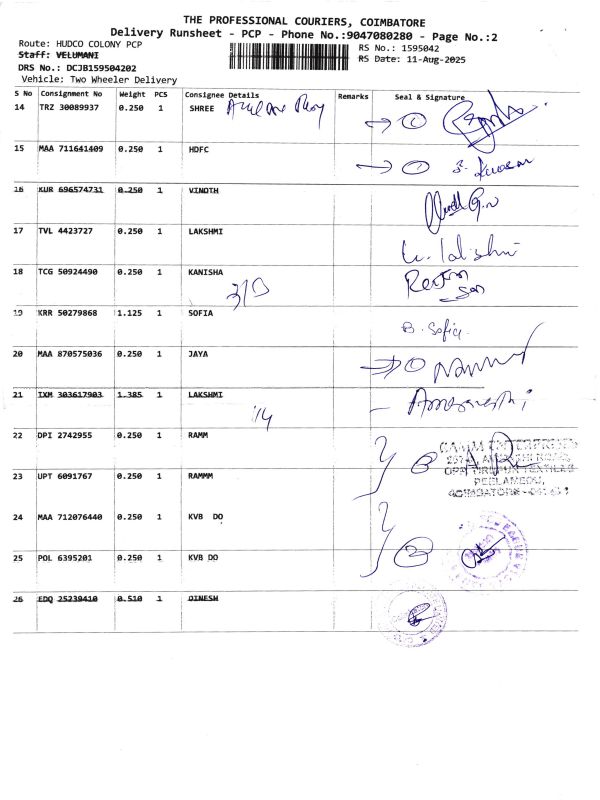 THE PROFESSIONAL COURIERS, COIMBATORE
Delivery Runsheet - PCP - Phone No.:9047080280 - Page No.:2
Route: HUDCO COLONY PCP
RS No.: 1595042
Staff: VELUMANI
RS Date: 11-Aug-2025
DRS No.: DCJB159504202
Vehicle: Two Wheeler Delivery
S No Consignment No Weight PCS Consignee Details Remarks Seal & Signature
14 TRZ 30089937 0.250 1 SHREE
15 MAA 711641409 0.250 1 HDFC
16 KUR 696574731 0.250 1 VINOTH
17 TVL 4423727 0.250 1 LAKSHMI
18 TCG 50924490 0.250 1 KANISHA
3/D
19 KRR 50279868 1.125 1 SOFIA B. Sofia
20 MAA 870575036 0.250 1 JAYA
21 IXM 303617903 1.385 1 LAKSHMI
22 DPI 2742955 0.250 1 RAMM
23 UPT 6091767 0.250 1 RAMMM
PEELAMEDU,
24 MAA 712076440 0.250 1 KVB DO
25 POL 6395201 0.250 1 KVB DO
26 EDQ 25239410 0.510 1 DINESH